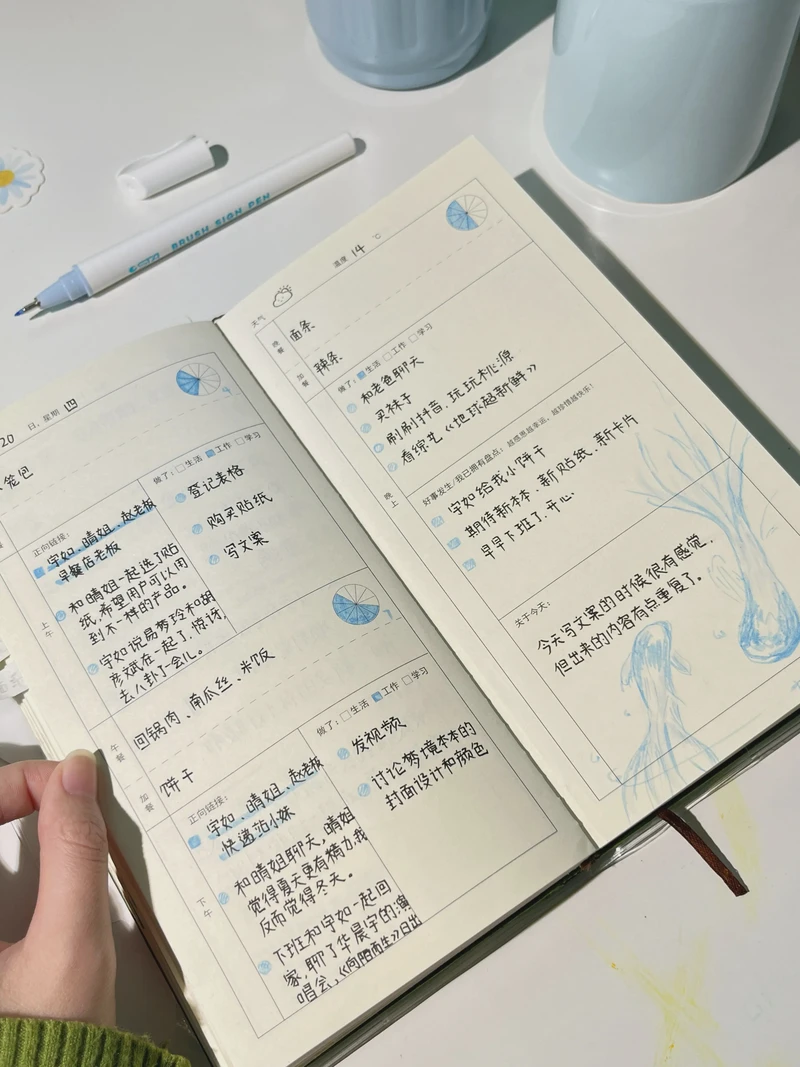 BRUSH SIGN PEN
20 日，星期 四
笼包
上午
正向链接：
宇如、晴姐、赵老板
早餐店老板
和晴姐一起选了贴
纸，希望用户可以用
到不一样的产品。
宇如说易梦玲和胡
彦斌在一起了，惊讶，
去八卦了一会儿。
做了：□生活 □工作 □学习
登记表格
购买贴纸
写文案
午餐
回锅肉、南瓜丝、米饭
加餐
饼干
下午
正向链接：
宇如、晴姐、赵老板
快递站小妹
和晴姐聊天，晴姐
觉得夏天更有精力，我
反而觉得冬天。
下班和宇如一起回
家，聊了华晨宇的演
唱会，《向阳而生》日出
做了：□生活 □工作 □学习
发视频
讨论梦境本本的
封面设计和颜色
天气
温度 14 ℃
晚餐
面条
加餐
辣条
晚上
做了：□生活 □工作 □学习
和老爸聊天
买袜子
刷刷抖音，玩玩桃源
看综艺《地球超新鲜》
好事发生/我已拥有盘点：越感恩越幸运，越珍惜越快乐！
宇如给我小饼干
期待新本本、新贴纸、新卡片
早早下班了，开心.
关于今天：
今天写文案的时候很有感觉，
但出来的内容有点重复了。